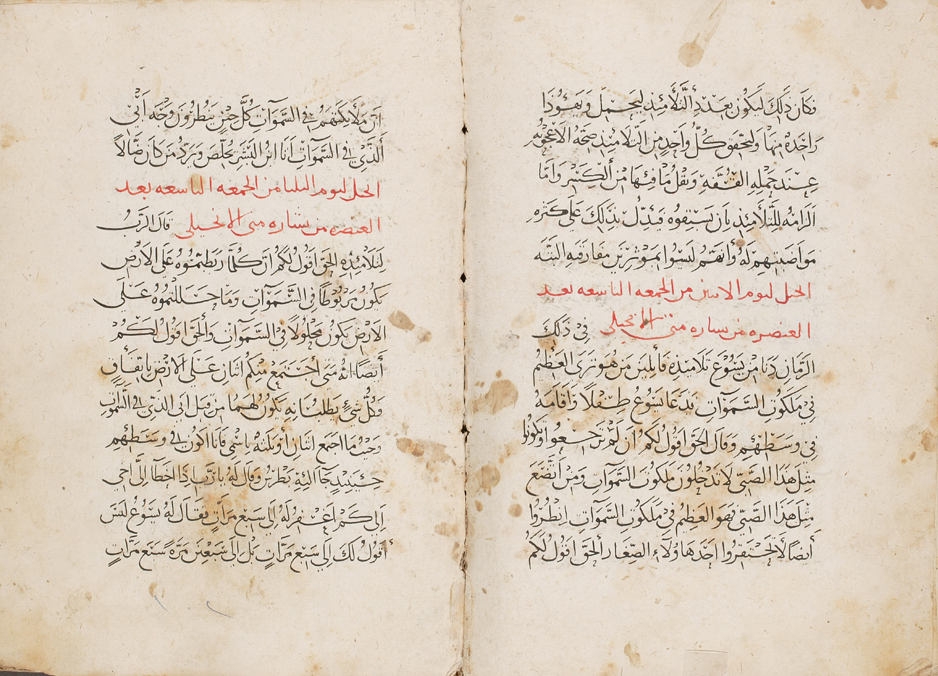 فكان ذلك ليكون بعدد التلاميذ ليحمل ويهوذا
واحدة منها وليتحقق كل واحد من التلاميذ صحة الاعجوبه
عند حمله القفه ونقل ما فيها من الكثير واما
الزامه للتلاميذ بان يسبقوه فيدل بذلك على كثرة
مواضبتهم له وانهم ليسوا بموثرين مفارقته البته
الحل ليوم الاثنين من الجمعه التاسعه بعد
العنصره من بشاره متى الانجيلي في ذلك
الزمان دنا من يسوع تلاميذه قايلين من هو ترى العظم
في ملكوت السموات فدعا يسوع طفلا واقامه
في وسطهم وقال الحق اقول لكم ان لم ترجعوا وتكونوا
مثل هذا الصبي لا تدخلون ملكوت السموات ومن اتضع
مثل هذا الصبي فهو العظيم في ملكوت السموات انظروا
ايضا لا تحتقروا احد هاولاء الصغار الحق اقول لكم
ان ملايكتهم في السموات كل حين ينظرون وجه ابي
الذي في السموات انا ابن البشر يخلص ويرد من كان ضالا
الحل ليوم الثلثا من الجمعه التاسعه بعد
العنصره من بشاره متى الانجيلي قال الرب
لتلاميذه الحق اقول لكم ان كلما ربطتموه على الارض
يكون مربوطا في السموات وما حللتموه على
الارض يكون محلولا في السموات والحق اقول لكم
ايضا انه متى اجتمع منكم اثنان على الارض باتفاق
وكل شيء يطلبانه يكون لهما من قبل ابي الذي في السموات
وحيث ما اجتمع اثنان او ثلثة باسمي فانا اكون في وسطهم
حينيذ جا اليه بطرس وقال له يا رب اذا اخطا الي اخي
الى كم اغفر له الى سبع مرات فقال له يسوع ليس
اقول لك الى سبع مرات بل الى سبعين مرة سبع مرات